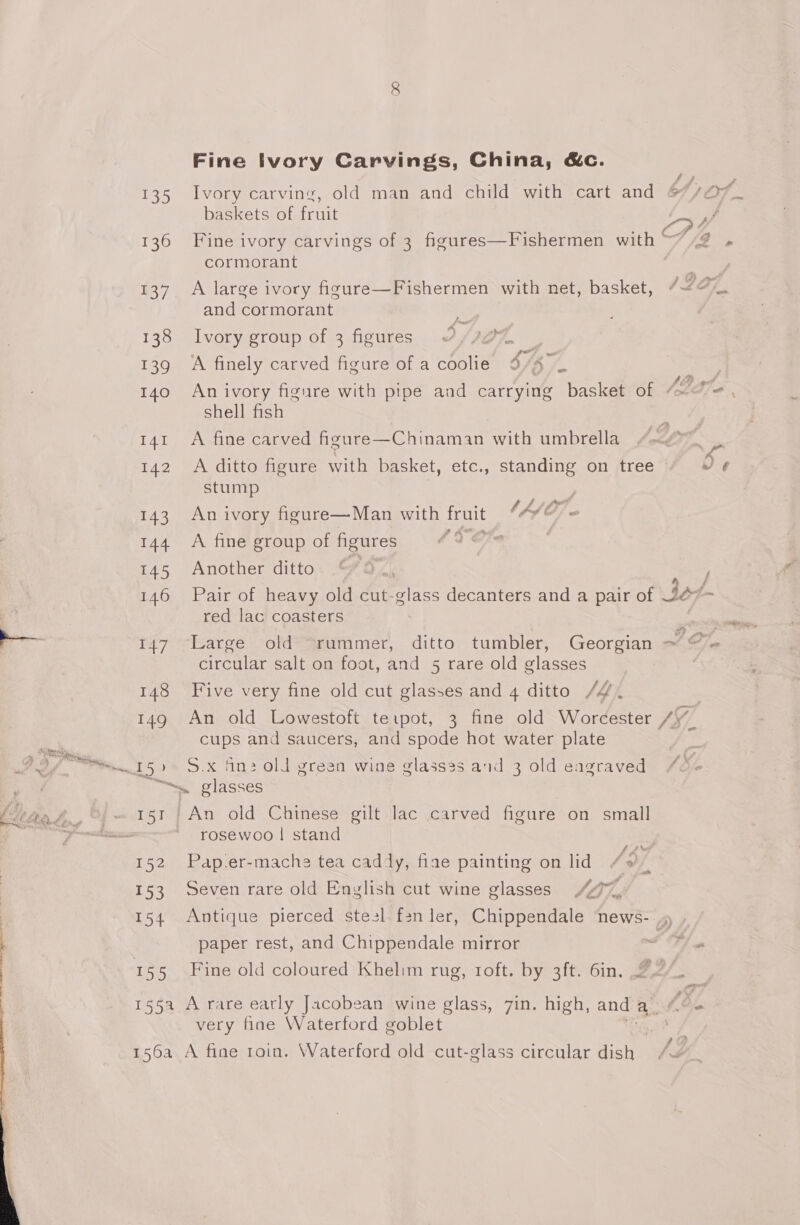 8
Fine Ivory Carvings, China, &c.
135 Ivory carving, old man and child with cart and
baskets of fruit
136 Fine ivory carvings of 3 figures—Fishermen with
cormorant
137 A large ivory figure—Fishermen with net, basket,
and cormorant
138 Ivory group of 3 figures
139 A finely carved figure of a coolie
140 An ivory figure with pipe and carrying basket of
shell fish
141 A fine carved figure—Chinaman with umbrella
142 A ditto figure with basket, etc., standing on tree
stump
143 An ivory figure—Man with fruit
144 A fine group of figures
145 Another ditto
146 Pair of heavy old cut-glass decanters and a pair of
red lac coasters
147 Large old rummer, ditto tumbler, Georgian
circular salt on foot, and 5 rare old glasses
148 Five very fine old cut glasses and 4 ditto
149 An old Lowestoft teapot, 3 fine old Worcester
cups and saucers, and spode hot water plate
150 Six fine old green wine glasses and 3 old engraved
glasses
151 An old Chinese gilt lac carved figure on small
rosewood stand
152 Papier-mache tea caddy, fine painting on lid
153 Seven rare old English cut wine glasses
154 Antique pierced steel fender, Chippendale news-
paper rest, and Chippendale mirror
155 Fine old coloured Khelim rug, 10ft. by 3ft. 6in.
155a A rare early Jacobean wine glass, 7in. high, and a
very fine Waterford goblet
156a A fine 10in. Waterford old cut-glass circular dish